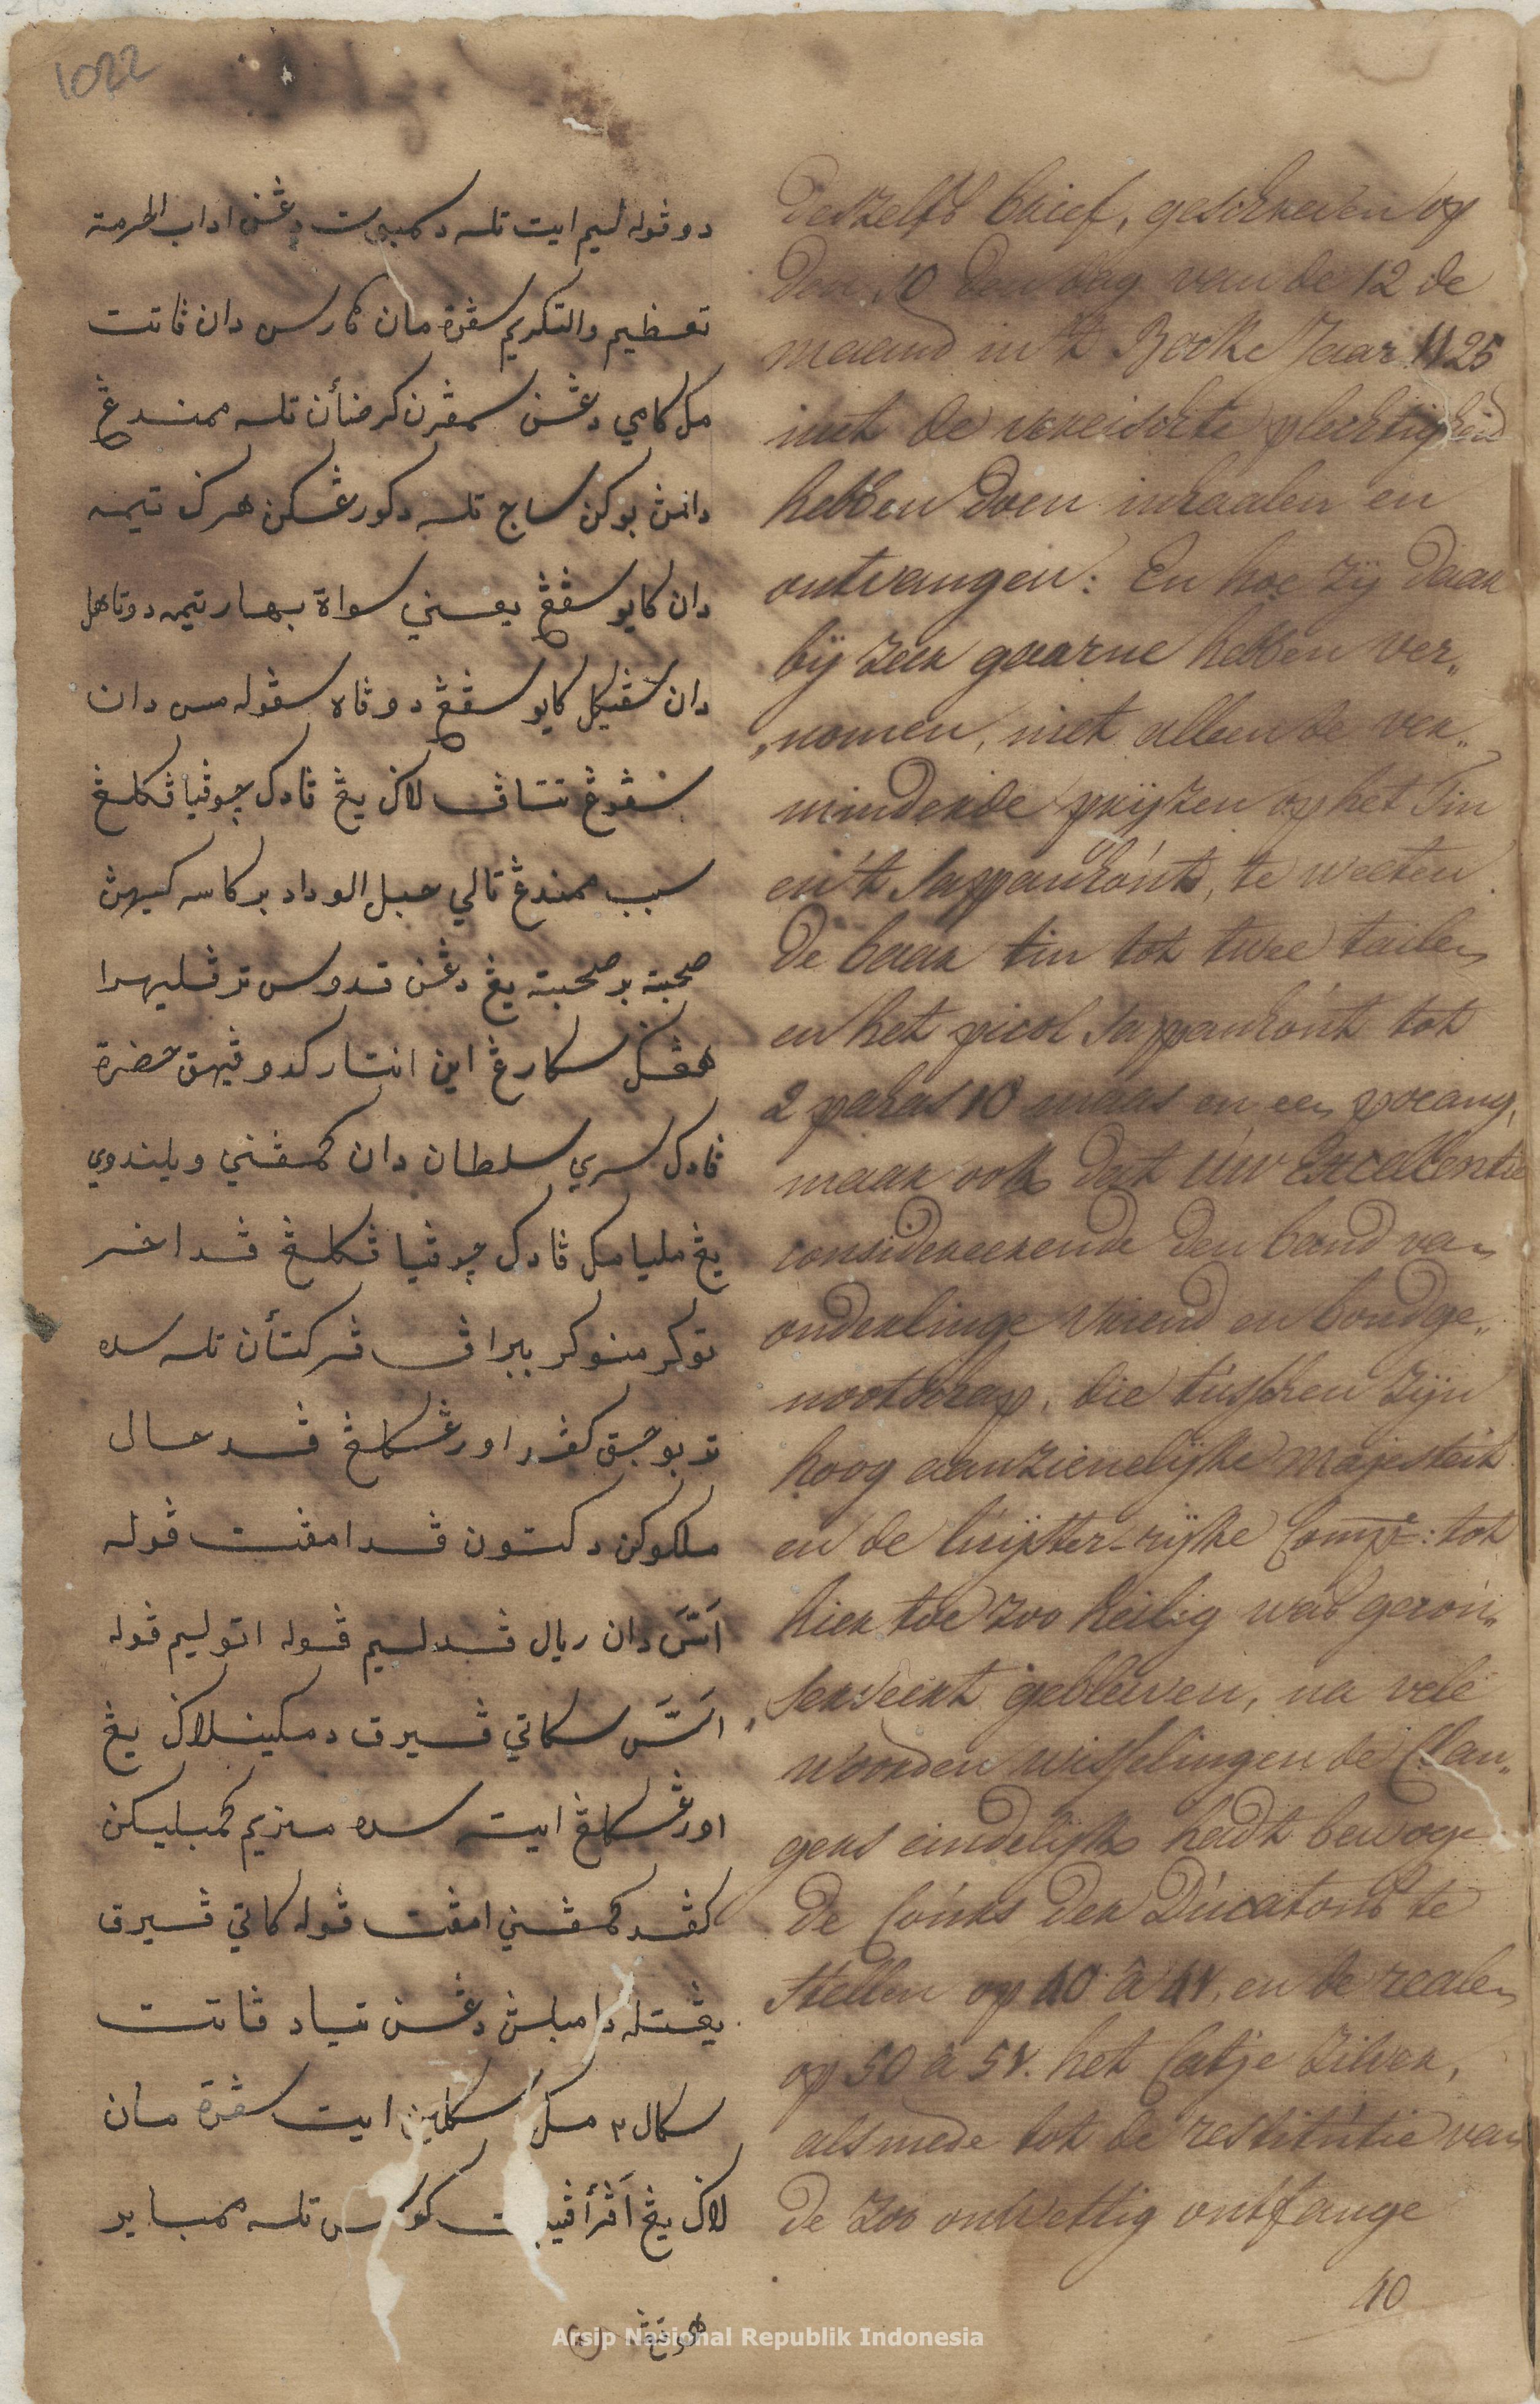 1022
دوڤوله ليم ايت تله دكمبوت دڠن اداب الحرمة
تعظيم والتكريم سڤرة مان كارس دان ڤاتت
مك كامي دڠن سمڤرن كرضأن تله ممندڠ
دانڽ بوكن ساج تله دكورڠكن هرݢ تيمه
دان كايو سڤڠ يعني سواة بهار تيمه دوتاهل
دان سڤيكل كايو سڤڠ دوڤاه سڤوله مس دان
سڤوڠ تتاڤ لاݢ يڠ ڤادك چوڤيا ڤڭلڠ
سبب ممندڠ تالي حبل الوداد بركاسه كسيهن
صحبة برصحبة يڠ دڠن قدوس ترڤليهرا
هڠݢ سكارڠ اين انتار كدو ڤيهق حضرة
ڤادك سري سلطان دان كمڤني ويلندوي
يڠ مليا مك ڤادك چوڤيا ڤڭلڠ ڤداخر
توكر منوكر ببراڤ ڤركتأن تله سده
تربوجق كڤد اورڠ كلڠ ڤد حال
ملكوكن دكتون ڤد امڤت ڤوله
اتس دان ريال ڤد ليم ڤوله اتو ليم ڤوله
اتس سكاتي ڤيرق دمكينله لاݢ يڠ
اورڠ كلڠ ايت سده منريم كمبليكن
كڤد كمڤني امڤت ڤوله كاتي ڤيرق
يڠتله دامبلڽ دڠن تياد ڤاتت
سكال٢ مك سكلين ايت سڤرة مان
لاݢ يڠ اڤرأڤيبت كوس تله ممباير
هوتڠ
deszelfs brief, geschreeven op
den 10 den dag van de 12 de
maand in 't Booke Jaar 1125
met de vereischte plechtigheid
hebben doen inhaalen en
ontvangen: En hoe zij daar
bij zeer gaarne hebben ver„
„nomen, niet alleen de ver„
minderde prijzen op het Tin
en 't Sappanhout, te weeten
de baar tin tot twee tailen
en het picol Sappanhout tot
2 pahas 10 maas en een poeang,
maar ook dat Uw Excellentie
considereerende den band van
onderlinge vriend en bondge„
nootschap, die tusschen zijn
hoog aanzienelijke Majesteit
en de luijster-rijke Compe: tot
hier toe zoo heilig was gecon„
serveert gebleeven, na vele
woorden wisselingen de Clan„
gers eindelijk hadt bewoge
de Cours der Ducatons te
stellen op 40 à 41. en de realen
op 50 à 51. het Catje zilver,
als mede tot de restitutie van
de zoo onwettig ontfange
40
Arsip Nasional Republik Indonesia